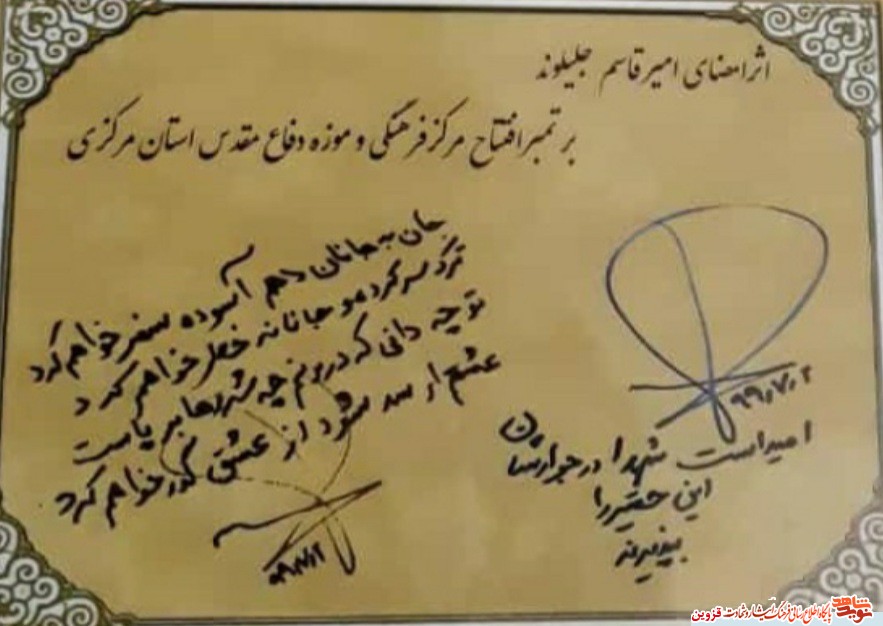 اثر امضای امیر قاسم جلیلوند
بر تمبر افتتاح مرکز فرهنگی و موزه دفاع مقدس استان مرکزی
جان به جانان دهم آسوده سفر خواهم کرد
ترک سر کرده و جانانه خطر خواهم کرد
تو چه دانی که درونم چه شررها برپاست
عشق ار سد شود از عشق گذر خواهم کرد
۹۹٫۷٫۲
۹۹٫۷٫۲
امید است شهدا در جوارشان
این حقیر را
بپذیرند
شاهد نوید
پایگاه اطلاع رسانی فرهنگ ایثار و شهادت قزوین